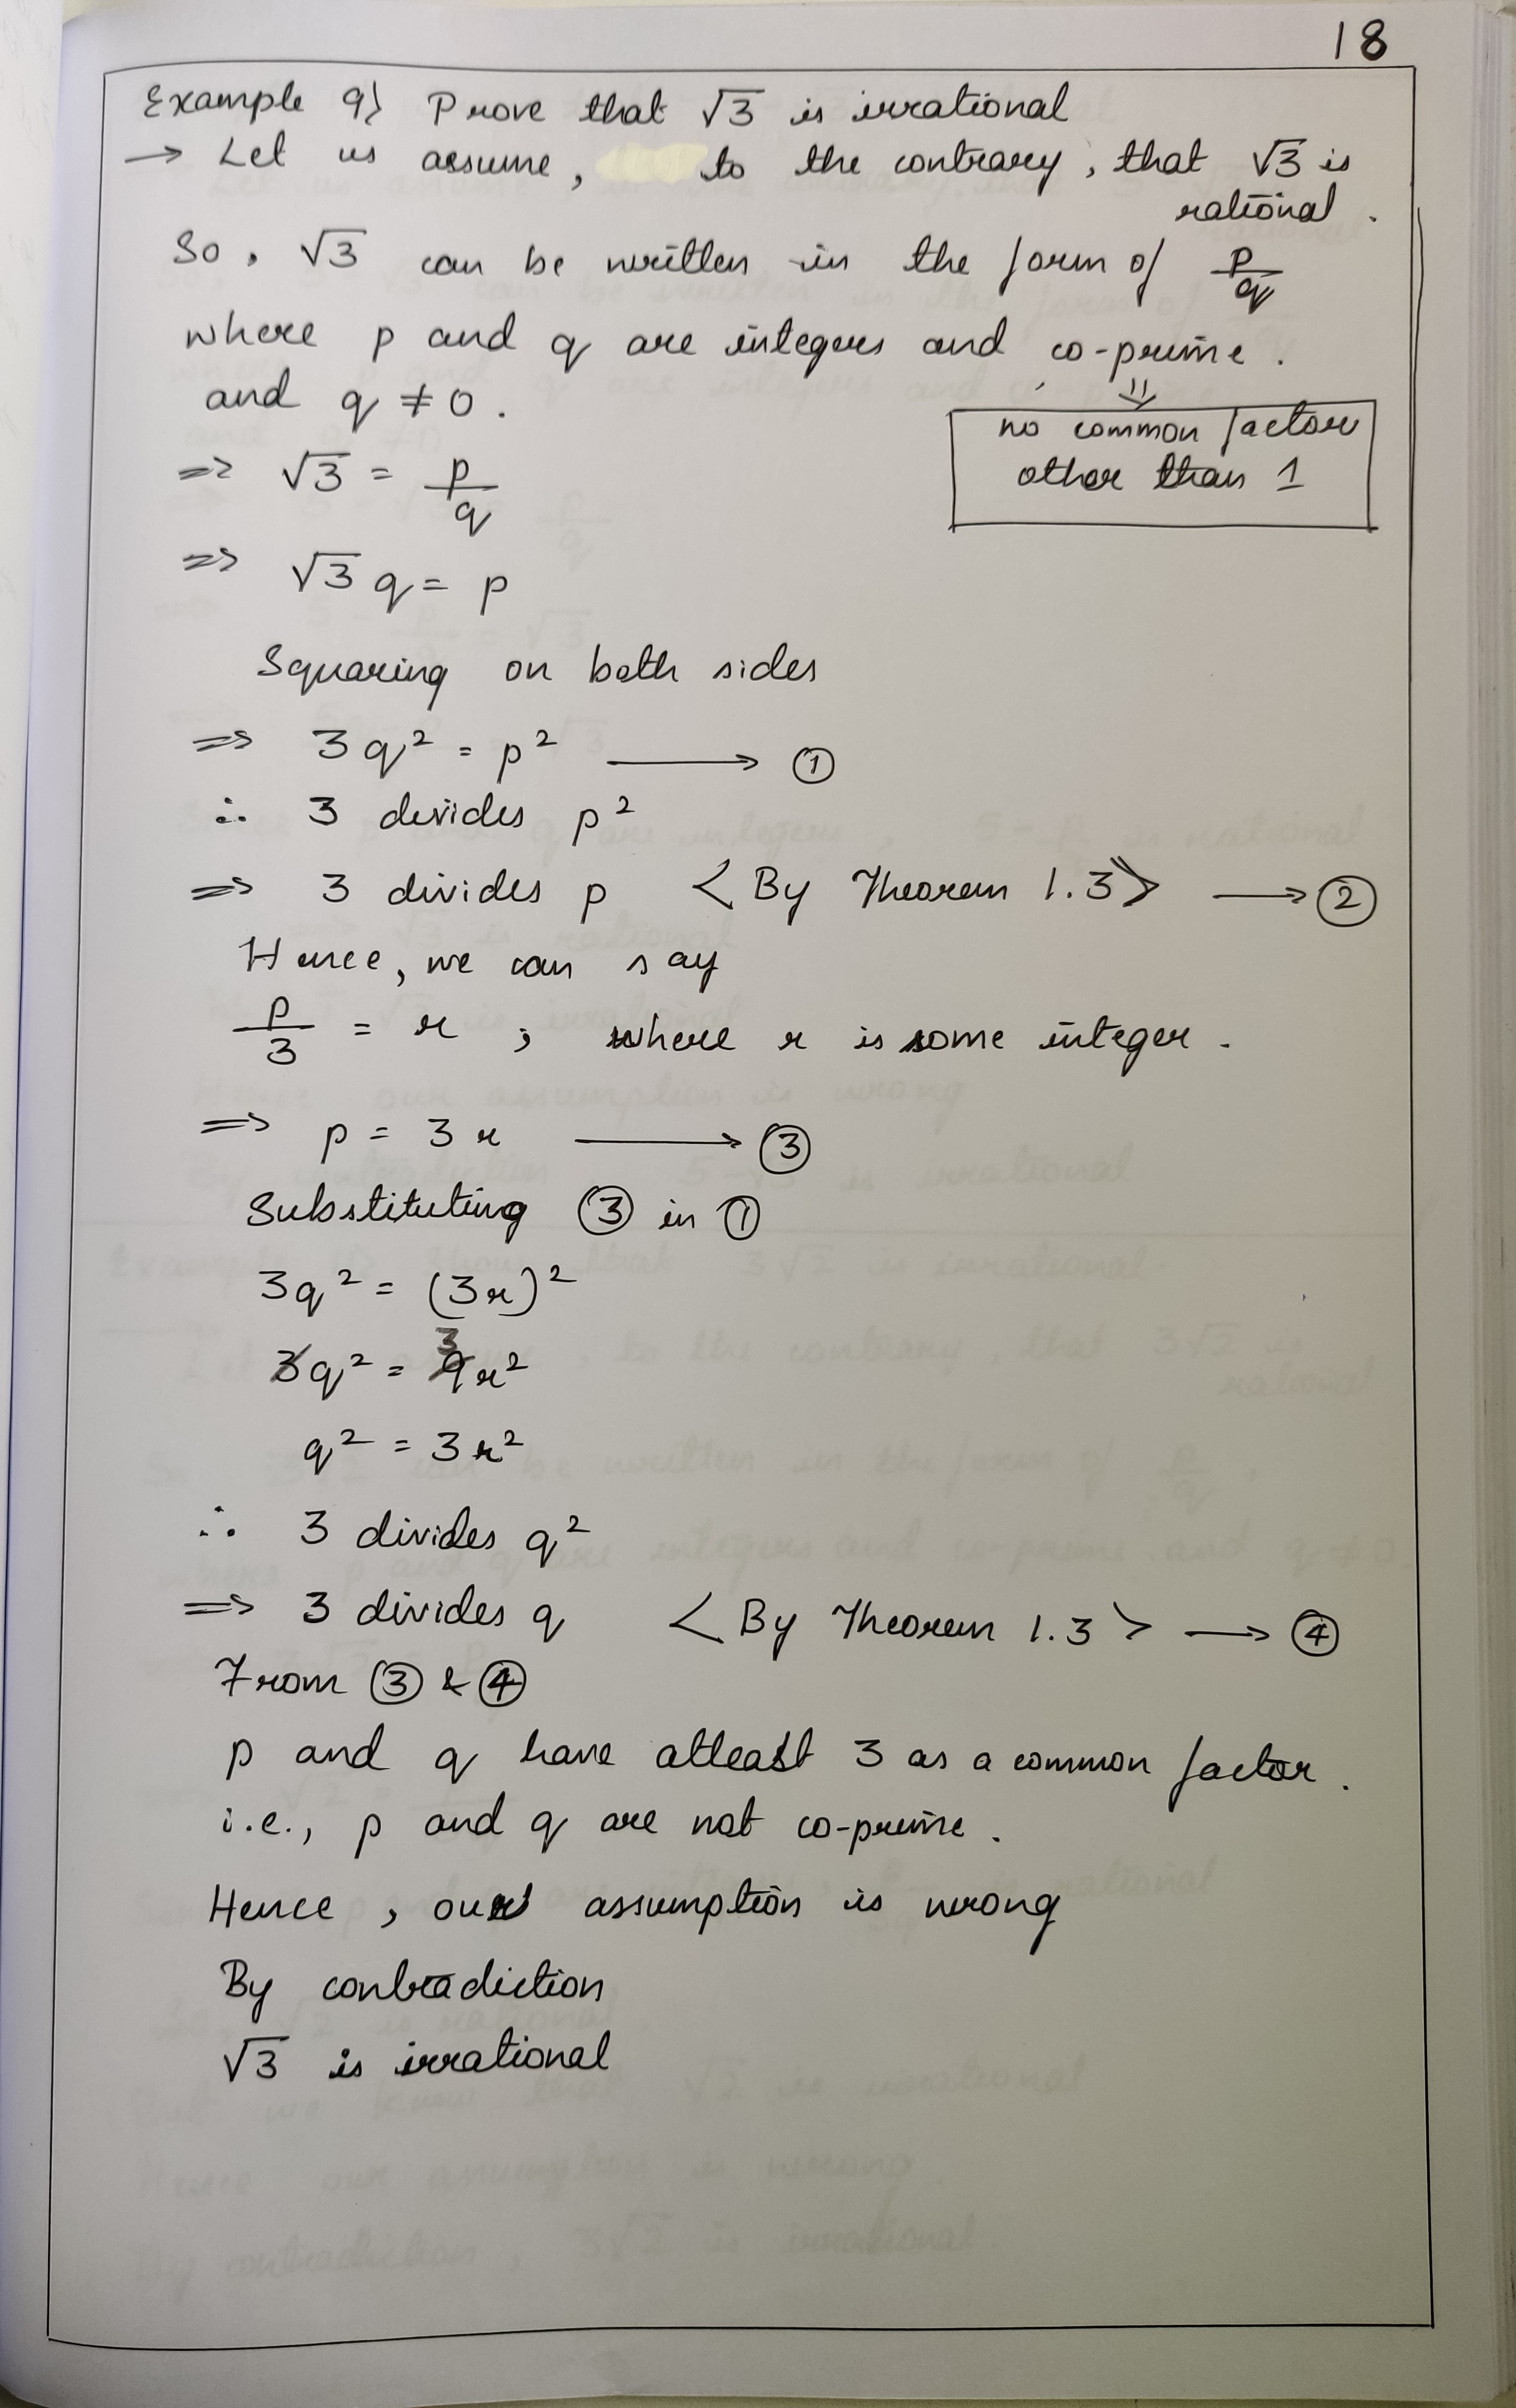 18
Example 9) Prove that √3 is irrational
→ Let us assume, to the contrary, that √3 is
rational.
So, √3 can be written in the form of p/q
where p and q are integers and co-prime.
and q ≠ 0.
⇓
no common factor
other than 1
⇒ √3 = p/q
⇒ √3 q = p
Squaring on both sides
⇒ 3q² = p² ⟶ ①
∴ 3 divides p²
⇒ 3 divides p <By Theorem 1.3> ⟶ ②
Hence, we can say
p/3 = r ; where r is some integer.
⇒ p = 3r ⟶ ③
Substituting ③ in ①
3q² = (3r)²
3
3q² = 9r²
q² = 3r²
∴ 3 divides q²
⇒ 3 divides q <By Theorem 1.3> ⟶ ④
From ③ & ④
p and q have atleast 3 as a common factor.
i.e., p and q are not co-prime.
Hence, our assumption is wrong
By contradiction
√3 is irrational